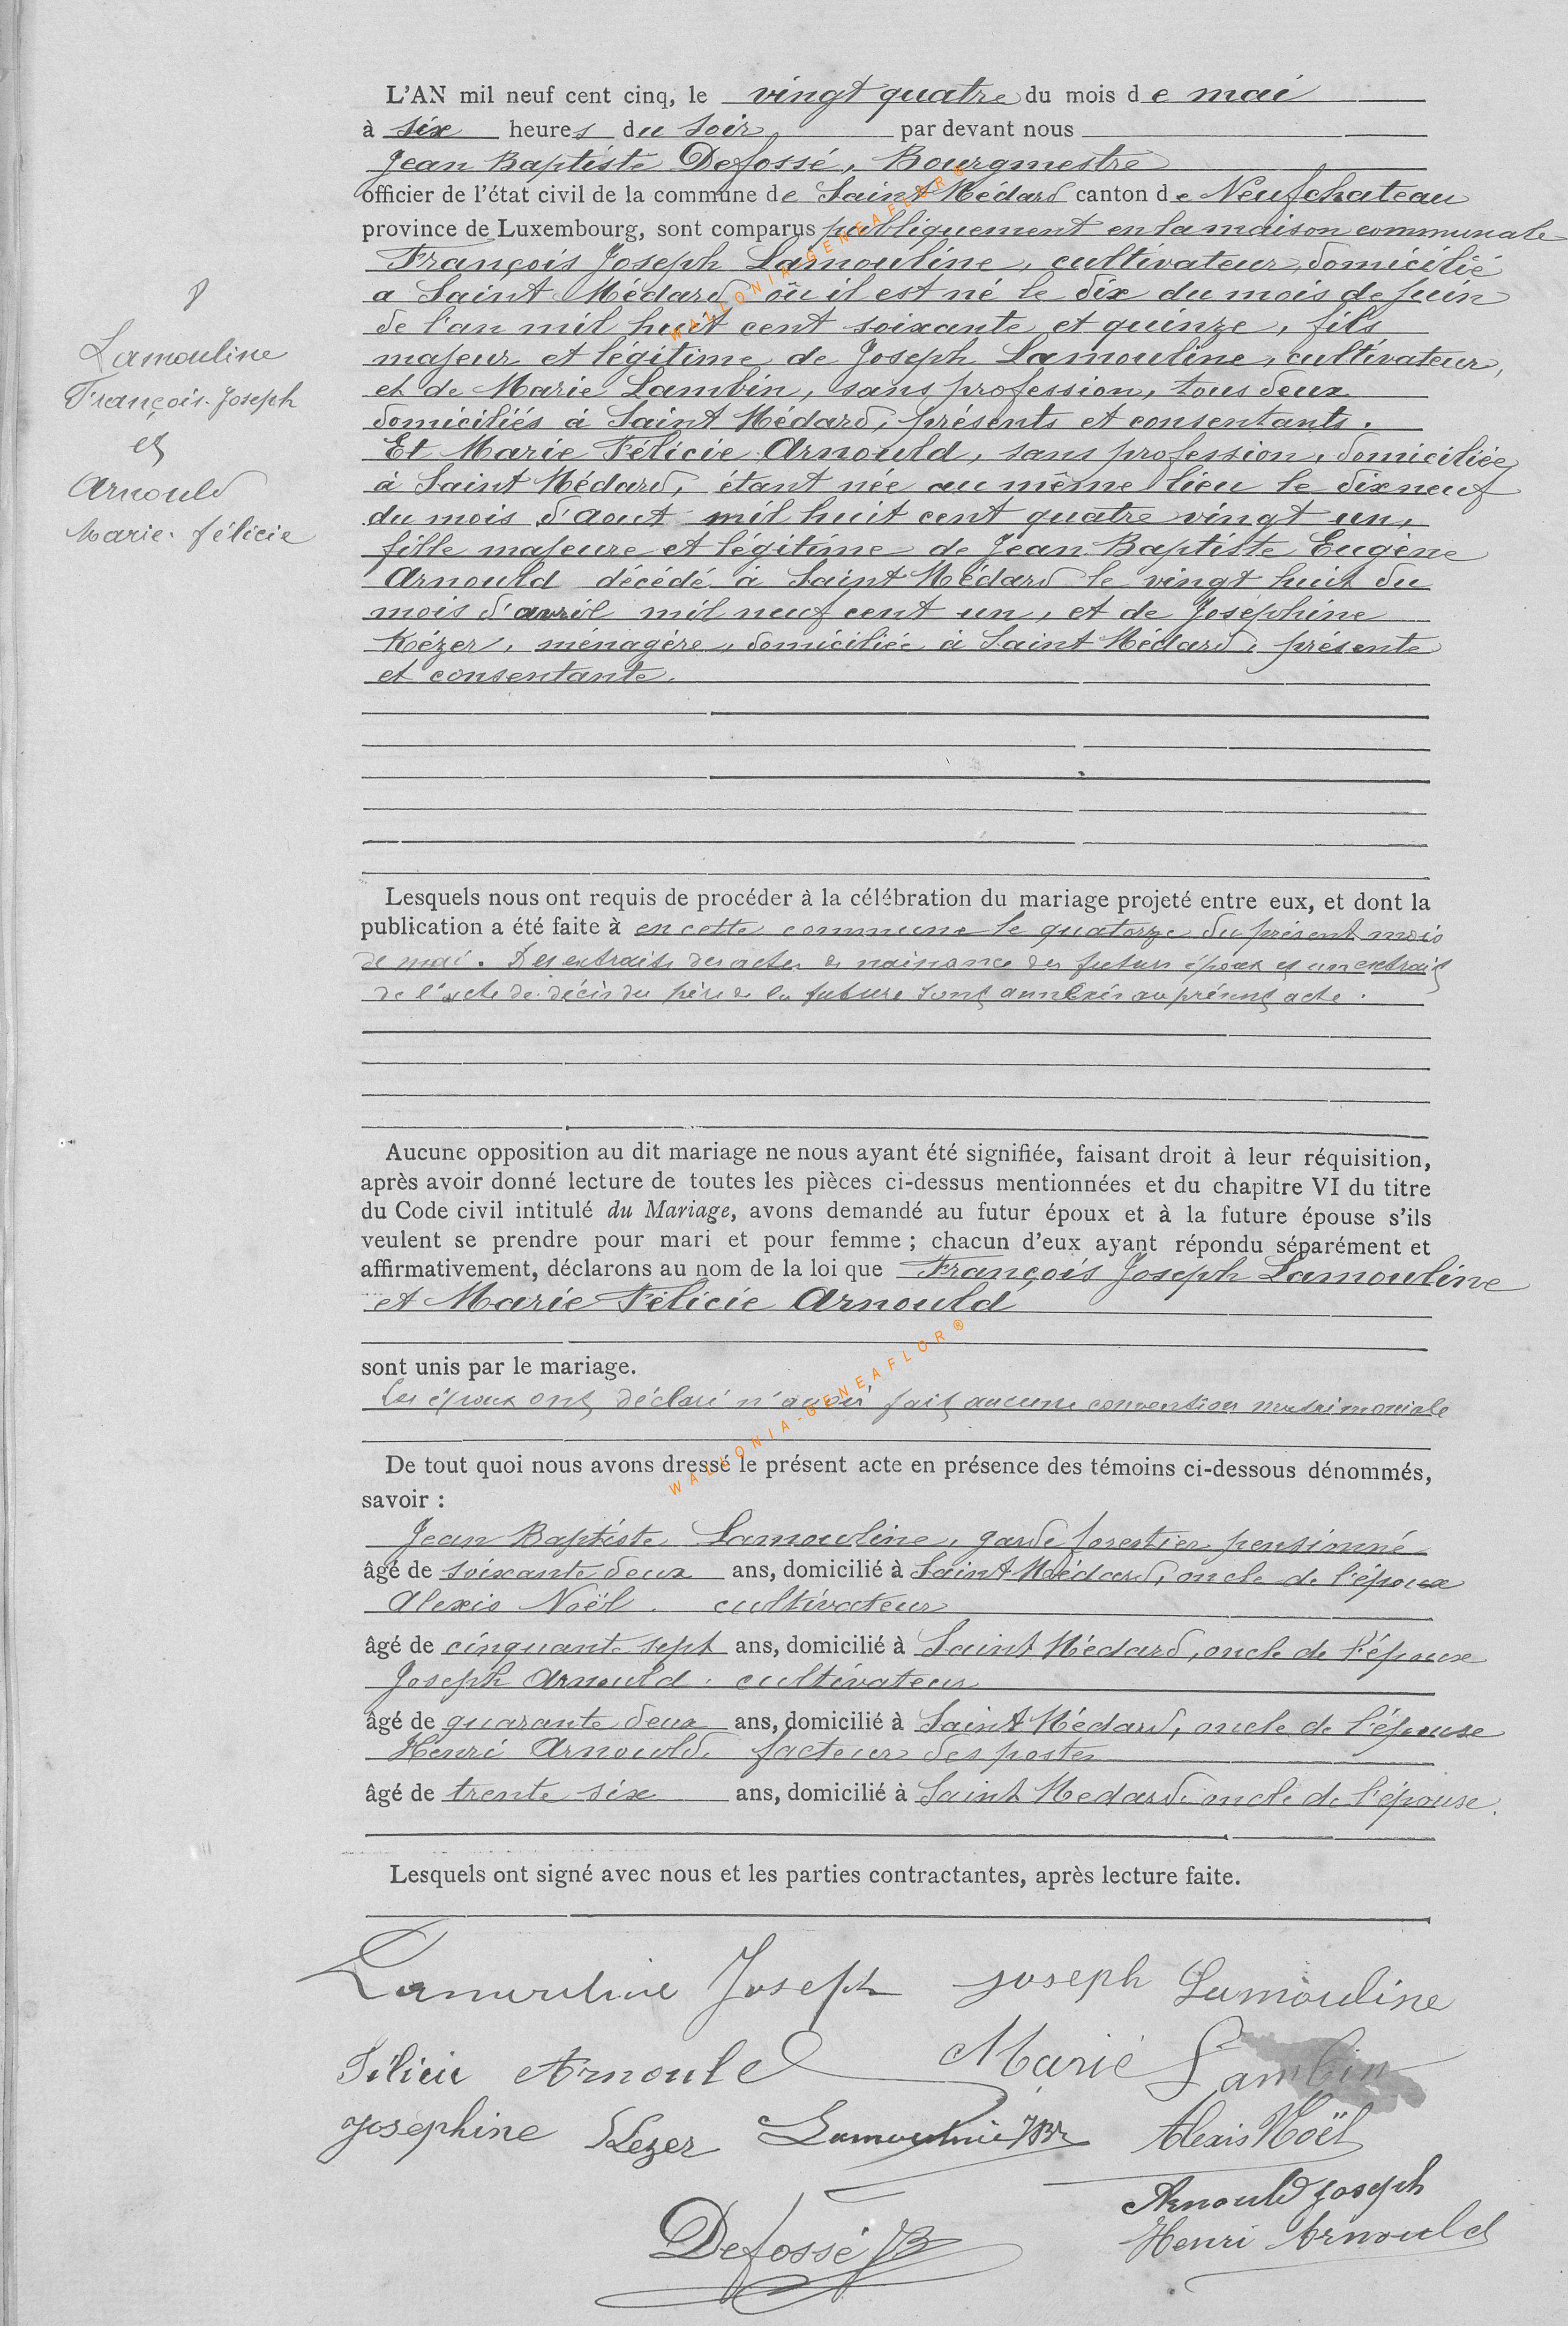 L'AN mil neuf cent cinq, le vingt quatre du mois de mai
à six heures du soir par devant nous
Jean Baptiste Defossé, Bourgmestre
officier de l'état civil de la commune de Saint Médard canton de Neufchateau
province de Luxembourg, sont comparus publiquement en la maison communale
François Joseph Lamouline, cultivateur, domicilié
a Saint Médard où il est né le dix du mois de juin
de l'an mil huit cent soixante et quinze, fils
majeur et légitime de Joseph Lamouline, cultivateur,
et de Marie Lambin, sans profession, tous deux
domiciliés à Saint Médard, présents et consentants.
Et Marie Félicie Arnould, sans profession, domiciliée
à Saint Médard, étant née au même lieu le dix neuf
du mois d'aout mil huit cent quatre vingt un,
fille majeure et légitime de Jean Baptiste Eugène
Arnould décédé à Saint Médard le vingt huit du
mois d'avril mil neuf cent un, et de Joséphine
Kézer, ménagère, domiciliée à Saint Médard, présente
et consentante.
8
Lamouline
François-Joseph
et
Arnould
Marie-Félicie
Lesquels nous ont requis de procéder à la célébration du mariage projeté entre eux, et dont la
publication a été faite à en cette commune le quatorze du présent mois
de mai. Des extraits des actes de naissance des futurs époux et un extrait
de l'acte de décès du père de la future sont annexés au présent acte.
Aucune opposition au dit mariage ne nous ayant été signifiée, faisant droit à leur réquisition,
après avoir donné lecture de toutes les pièces ci-dessus mentionnées et du chapitre VI du titre
du Code civil intitulé du Mariage, avons demandé au futur époux et à la future épouse s'ils
veulent se prendre pour mari et pour femme ; chacun d'eux ayant répondu séparément et
affirmativement, déclarons au nom de la loi que François Joseph Lamouline
et Marie Félicie Arnould
sont unis par le mariage.
Les époux ont déclaré n'avoir fait aucune convention matrimoniale
De tout quoi nous avons dressé le présent acte en présence des témoins ci-dessous dénommés,
savoir :
Jean Baptiste Lamouline, garde forestier pensionné
âgé de soixante deux ans, domicilié à Saint Médard, oncle de l'époux
Alexis Noël. cultivateur
âgé de cinquante sept ans, domicilié à Saint Médard, oncle de l'épouse
Joseph Arnould. cultivateur
âgé de quarante deux ans, domicilié à Saint Médard, oncle de l'épouse
Henri Arnould. facteur des postes
âgé de trente six ans, domicilié à Saint Medard. oncle de l'épouse.
Lesquels ont signé avec nous et les parties contractantes, après lecture faite.
Lamouline Joseph Joseph Lamouline
Félicie Arnould Marie Lambin
Joséphine Kezer Lamouline JBte Alexis Noël
Arnould Joseph
Defossé JB Henri Arnould
WALLONIA-GENEAFLOR ®
WALLONIA-GENEAFLOR ®